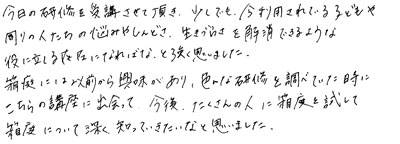 今日の研修を受講させて頂き、少しでも、今利用されている子どもや
周りの人たちの悩みやしんどさ、生きづらさを解消できるような
役に立てる存在になればな、と強く思いました。
箱庭には以前から興味があり、色んな研修を調べていた時に
こちらの講座に出会って、今後、たくさんの人に箱庭を試して
箱庭について深く知っていきたいなと思いました。